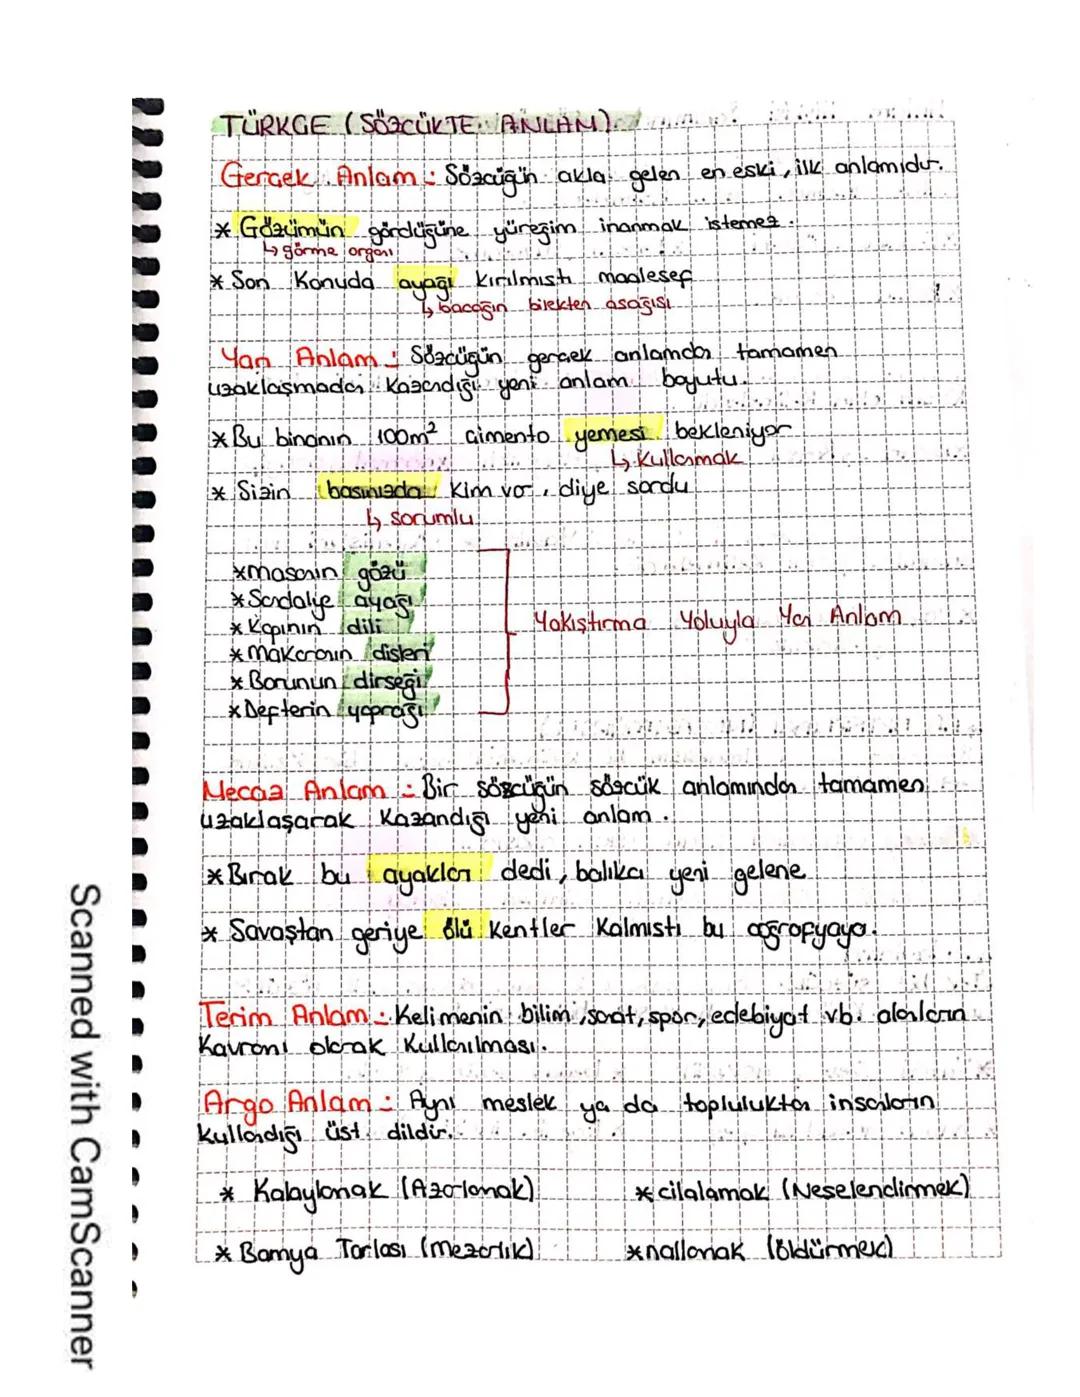 TÜRKÇE (SÖZCÜKTE ANLAM)
Gerçek Anlam : Sözcüğün akla gelen en eski, ilk anlamıdır.
* Gözümün gördüğüne yüreğim inanmak istemez.
↳ görme organı
* Son Konuda ayağı kırılmıştı maalesef
↳ bacağın bilekten aşağısı
Yan Anlam : Sözcüğün gerçek anlamdan tamamen
uzaklaşmadan Kazandığı yeni anlam boyutu.
* Bu binanın 100m² çimento yemesi bekleniyor
↳ Kullanmak
* Sizin başınızda kim var, diye sordu
↳ sorumlu
* masanın gözü
* Sandalye ayağı
* Kapının dili
* Makaranın dişleri
* Borunun dirseği
* Defterin yaprağı
Yakıştırma Yoluyla Yan Anlam
Mecaz Anlam : Bir sözcüğün sözcük anlamından tamamen
uzaklaşarak Kazandığı yeni anlam.
* Bırak bu ayakları dedi, balıkçı yeni gelene
* Savaştan geriye ölü Kentler Kalmıştı bu coğrofyaya.
Terim Anlam : Kelimenin bilim, sanat, spor, edebiyat vb. alanların
Kavramı olarak Kullanılması.
Argo Anlam : Aynı meslek ya da topluluktan insanların
Kullandığı üst dildir.
* Kalaylamak (Azarlamak)
* cilalamak (Neşelendirmek)
* Bamya Tarlası (mezarlık)
* nallamak (öldürmek)
Scanned with CamScanner